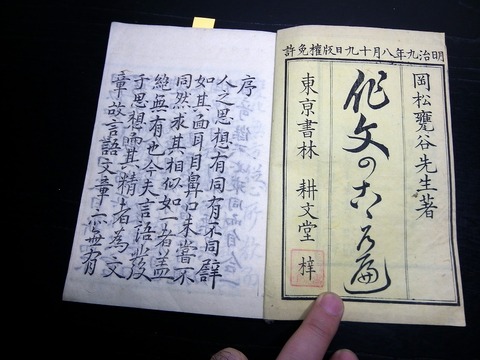 明治九年八月十九日版權免許
岡松甕谷先生著
作文の
東京書林 耕文堂 梓
序
人之思想有同有不同譬
如其面耳目鼻口未嘗不
同然求其相似如一者蓋
絶無有也今夫言語發
于思想而其精者為文
章故言語文章亦無有